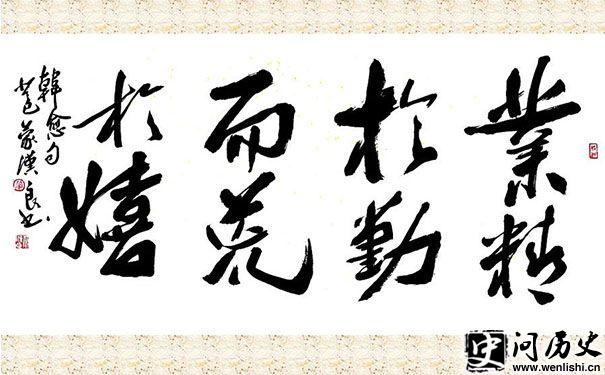 業精
於勤
而荒
於嬉
韓愈句
史 问历史
www.wenlishi.cn